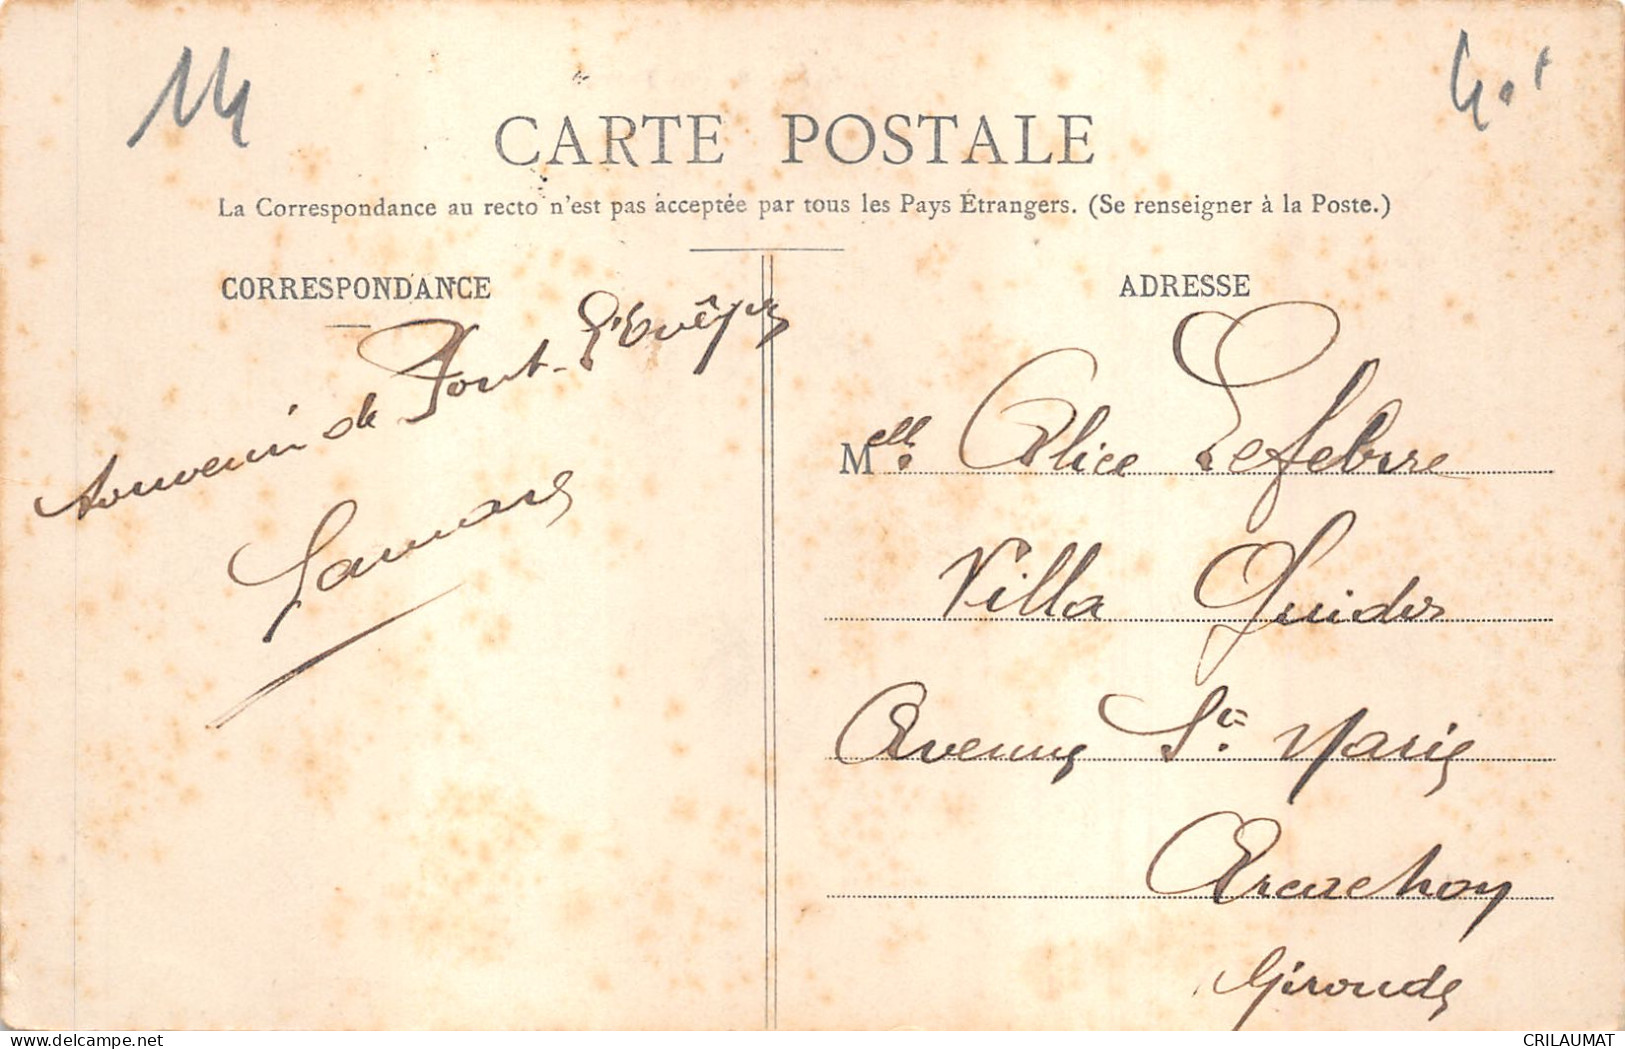 14
CARTE POSTALE
La Correspondance au recto n'est pas acceptée par tous les Pays Étrangers. (Se renseigner à la Poste.)
CORRESPONDANCE
Souvenir de Pont-L'Evêque
ADRESSE
Melle. Alice Lefebvre
Villa
Avenue Ste Marie
Arcachon
Gironde
delcampe.net
CRILAUMAT